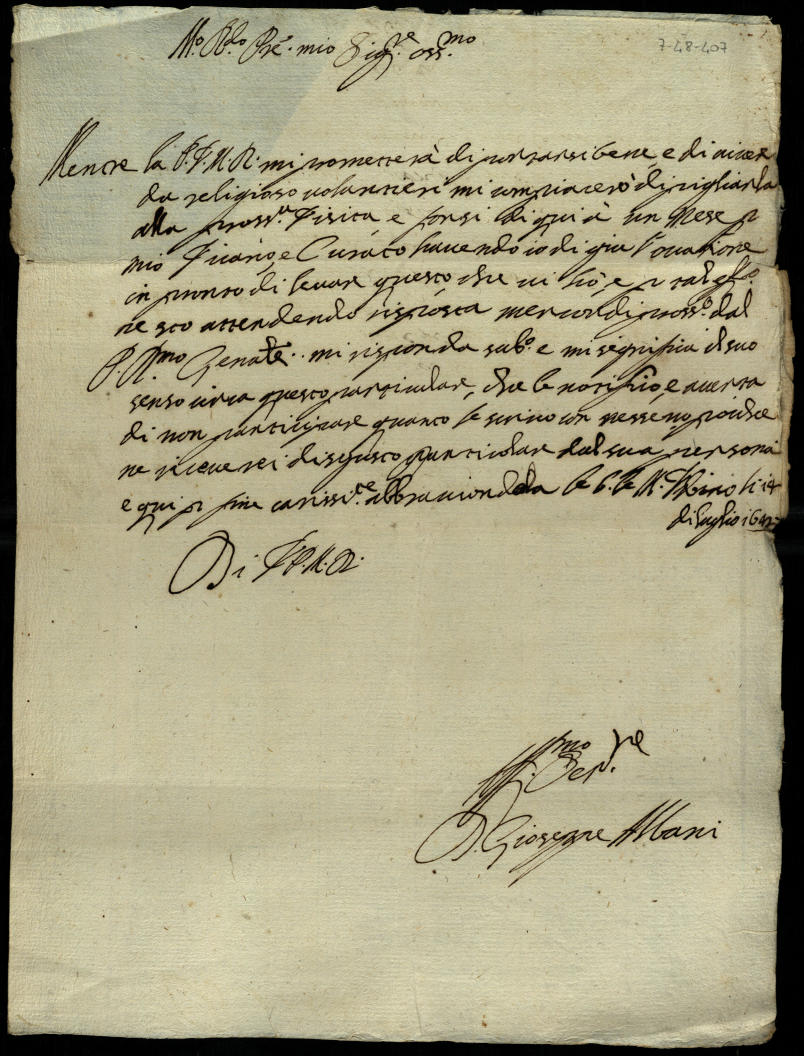 7-48-407
M.o R.do Pre. mio Sig.re oss.mo
Mentre la P. V. M. R. mi prometterà di portarsi bene, e di viver
da religioso volontieri mi compiacerò di pigliarla
alla pross.a Visita e forsi di qui à un Mese p
mio Vicario, e Curato havendo io di già l'occasione
in pronto di levar questo che vi hò, e p tal eff.o
ne sto attendendo risposta mercordi pross.o dal
P. R.mo Gen.ale. mi risponda sub.o e mi significa il suo
senso circa questo particular, che le notifico, e averta
di non participare quanto le scrivo con nesseno, poiche
ne riceverei disgusto particolare dal sua persona
e qui p fine cariss.te abbracciandola le b. le M. li 14
di luglio 164
Di V. P. M. R.
Aff.mo Ser.re
D. Gioseppe Albani